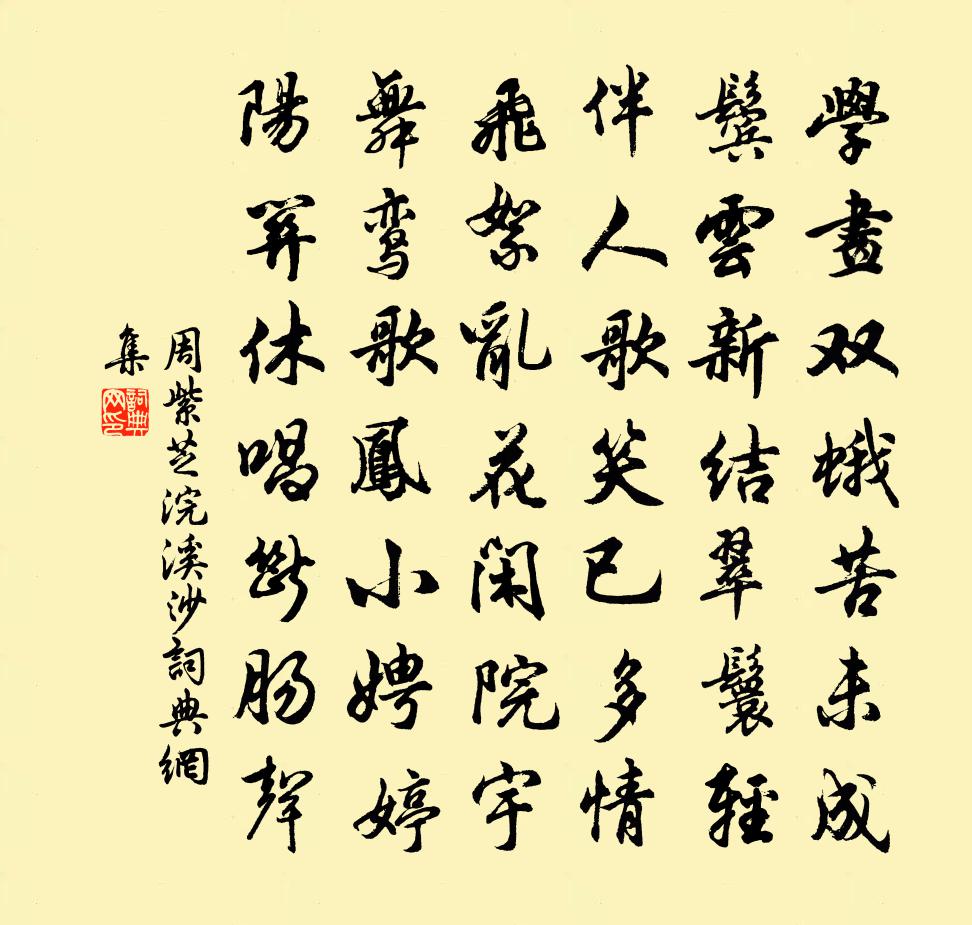 學畫双蛾苦未成
鬓雲新结翠鬟輕
伴人歌笑已多情
飛絮亂花闲院宇
舞鸾歌鳳小娉婷
陽関休唱断肠聲
周紫芝浣溪沙詞典網
集
詞典网印